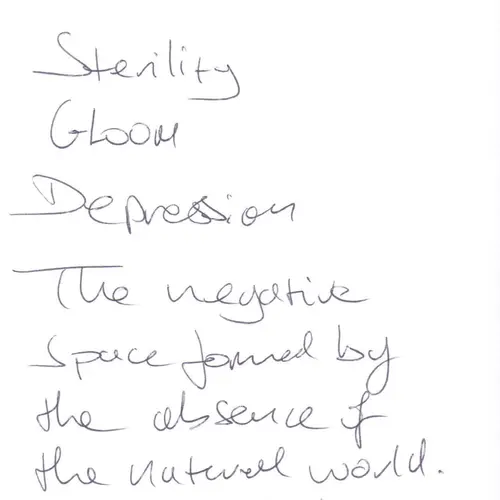 Sterility
Gloom
Depression
The negative
space formed by
the absence of
the natural world.